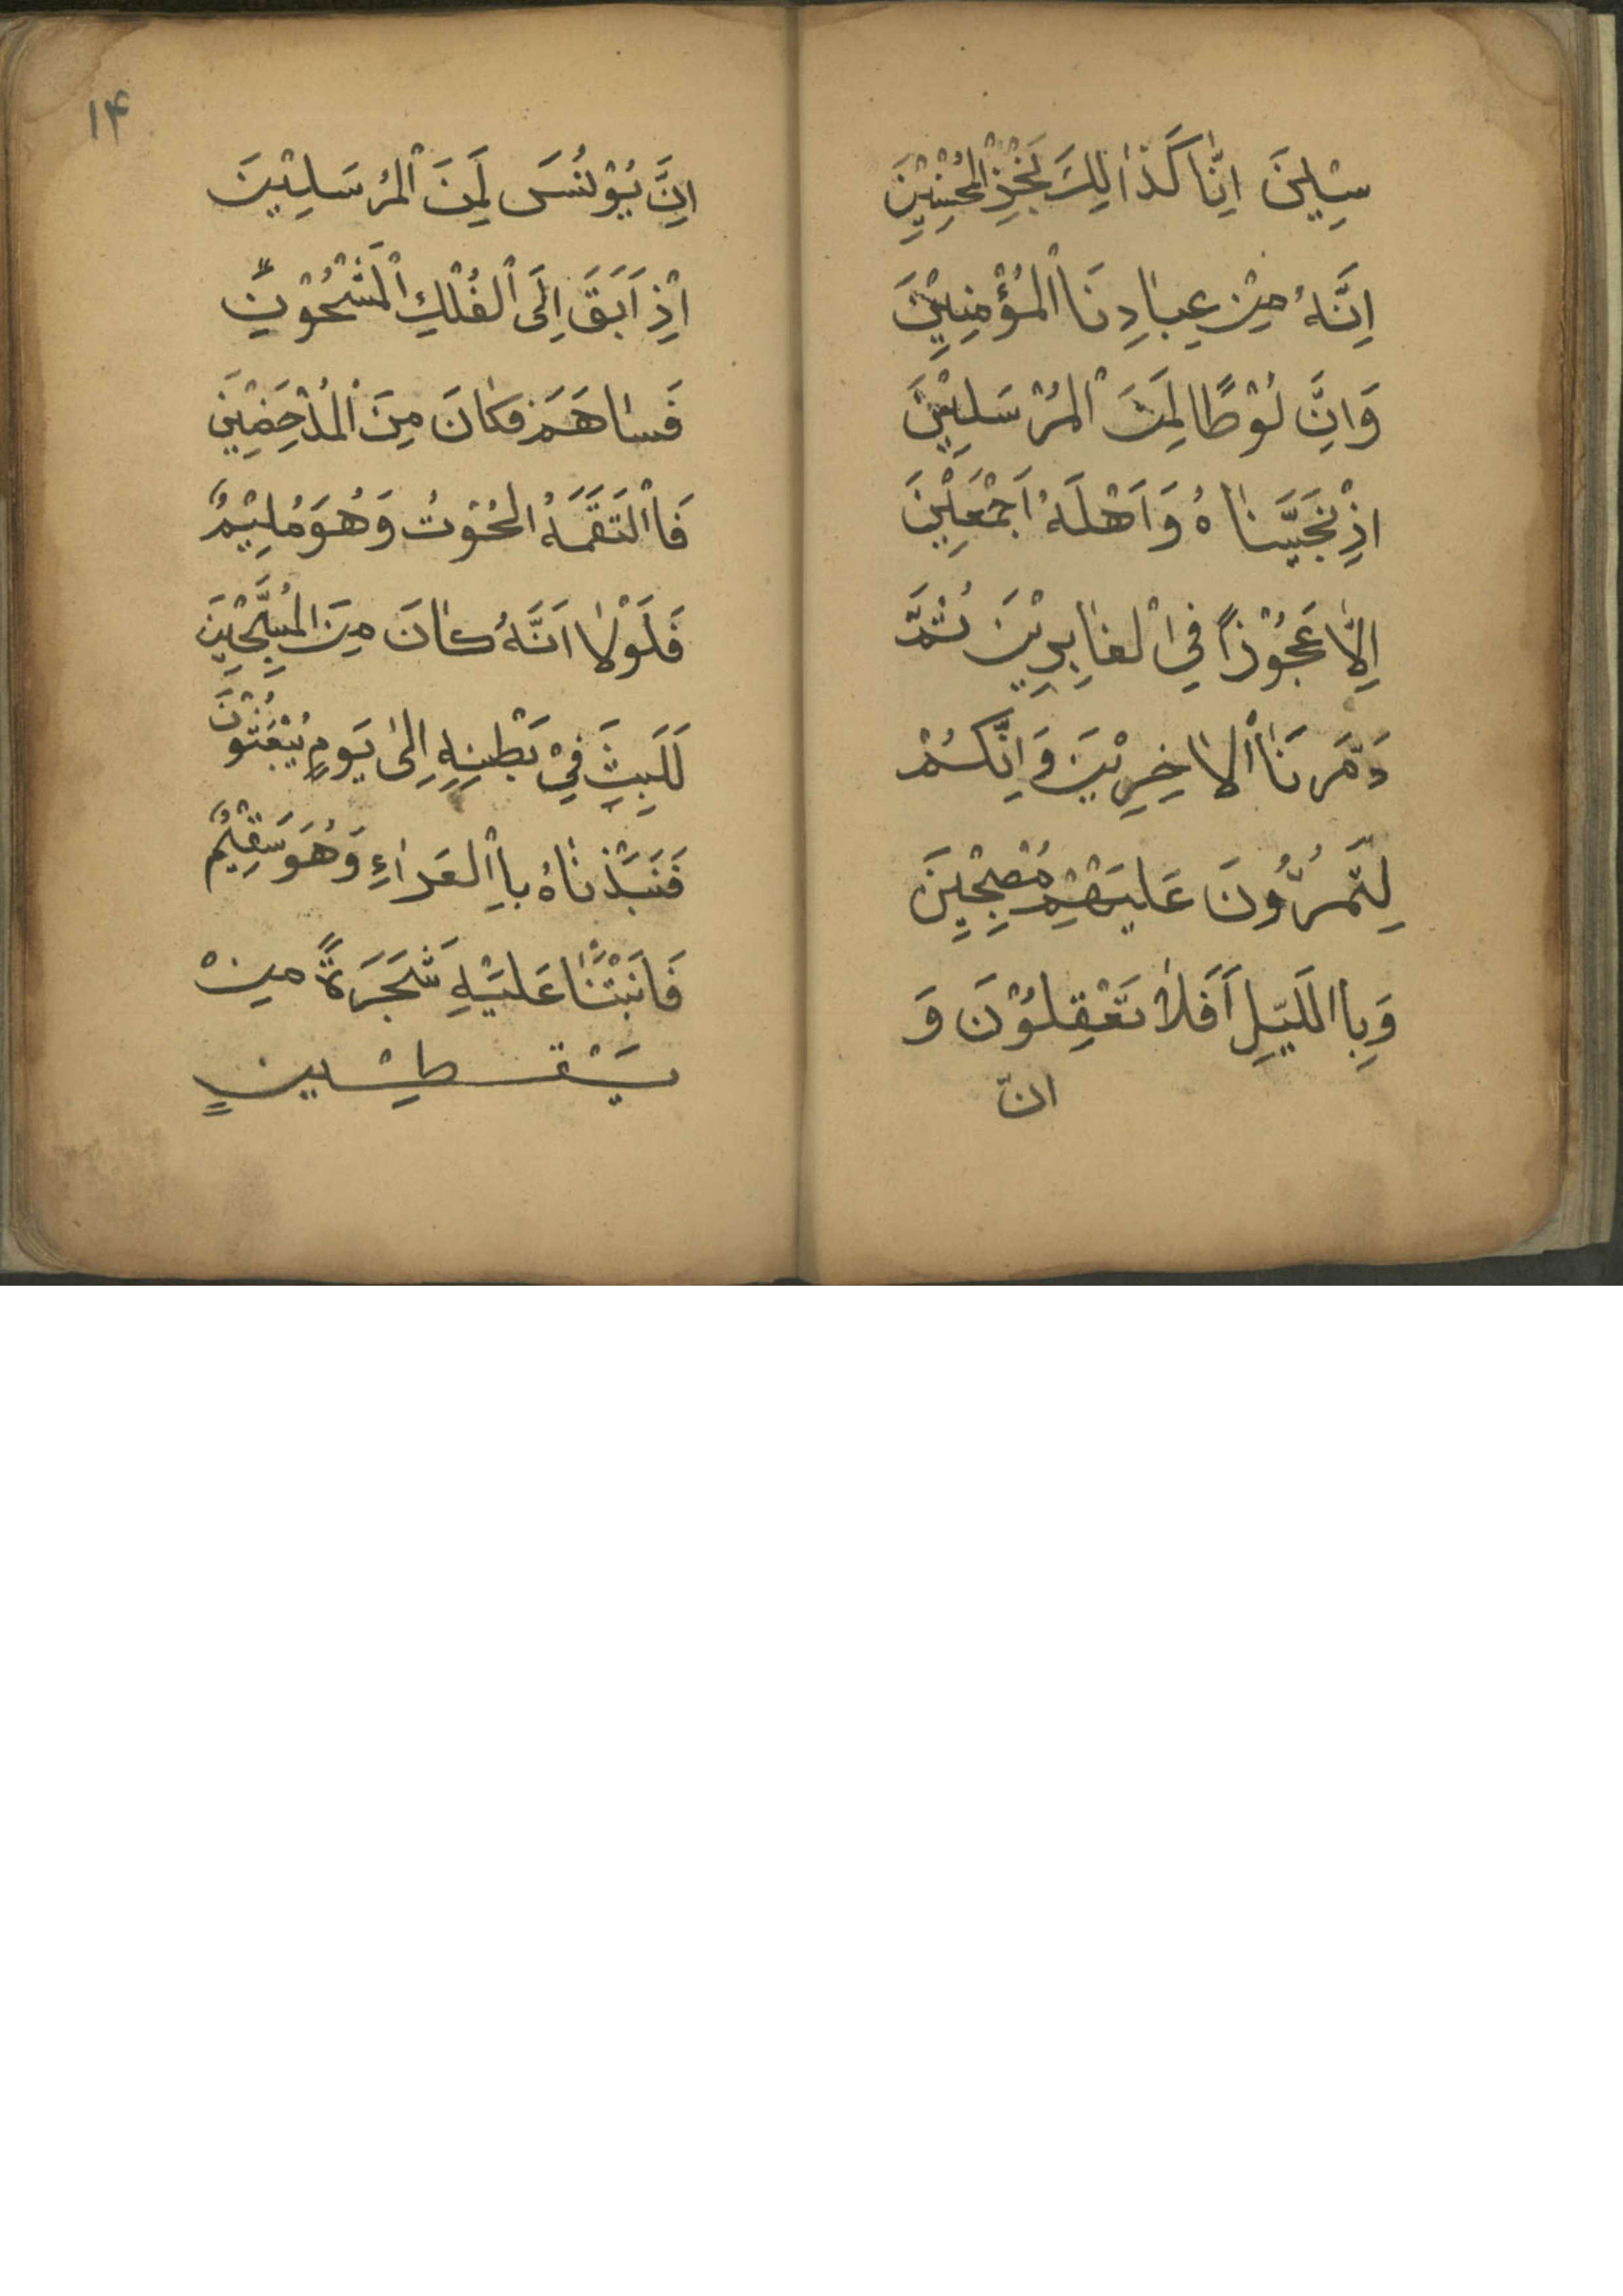 سِیْلینَ اِنّٰا كَذٰالِكَ نَجْزِیْ الْمُحْسِنِیْنَ
اِنَّهُ مِنْ عِبٰادِنَا الْمُؤْمِنِیْنَ
وَاِنَّ لُوْطًا لَمِنَ الْمُرْسَلِیْنَ
اِذْ نَجَّیْنٰاهُ وَاَهْلَهُ اَجْمَعِیْنَ
اِلّٰا عَجُوْزاً فِی الْغٰابِرِیْنَ ثُمَّ
دَمَّرنَا الْاٰخِرِیْنَ وَاِنَّكُمْ
لِتَمُرُّوُنَ عَلَیْهِمْ مُصْبِحْیِنَ
وَبِاالَلیّلِ اَفَلٰا تَعْقِلُوْنَ وَ
انّ
۱۴
اِنَّ یُوْنُسَ لَمِنَ الْمُرسَلِیْنَ
اِذْ اَبَقَ اِلَی الْفُلْكِ الْمَشْحُوْنِ
فَسٰاهَمَ فَكٰانَ مِنَ الْمُدْحَضِیْنَ
فَاالْتَقَمَهُ الحُوْتُ وَهُوَ مُلِیْمٌ
فَلَوْلٰا اَنَّهُ كٰانَ مِنَ الْمُسَبِّحِیْنَ
لَلَبِثَ فِیْ بَطْنِهِ اِلیٰ یَومِ یُبْعَثُوْنَ
فَنَبَذْنٰاهُ بِاالْعَرٰاءِ وَهُوَ سَقِیْمٌ
فَاَنْبَتْنٰا عَلَیْهِ شَجَرَةً مِنْ
یَقْطِیْنٍ